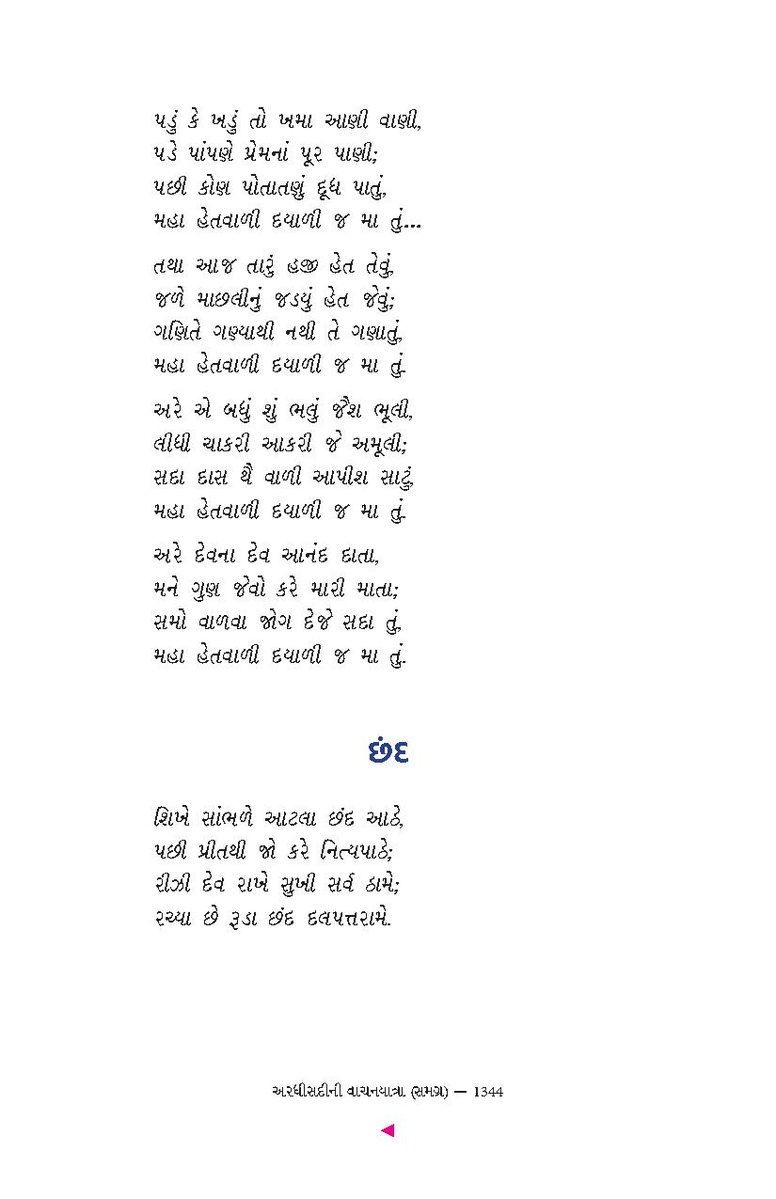 પડું કે ખડું તો ખમા આણી વાણી,
પડે પાંપણે પ્રેમનાં પૂર પાણી;
પછી કોણ પોતાતણું દૂધ પાતું,
મહા હેતવાળી દયાળી જ મા તું...
તથા આજ તારું હજી હેત તેવું,
જળે માછલીનું જડયું હેત જેવું;
ગણિતે ગણ્યાથી નથી તે ગણાતું,
મહા હેતવાળી દયાળી જ મા તું.
અરે એ બધું શું ભલું જૈશ ભૂલી,
લીધી ચાકરી આકરી જે અમૂલી;
સદા દાસ થૈ વાળી આપીશ સાટું,
મહા હેતવાળી દયાળી જ મા તું.
અરે દેવના દેવ આનંદ દાતા,
મને ગુણ જેવો કરે મારી માતા;
સમો વાળવા જોગ દેજે સદા તું,
મહા હેતવાળી દયાળી જ મા તું.
છંદ
શિખે સાંભળે આટલા છંદ આઠે,
પછી પ્રીતથી જો કરે નિત્યપાઠે;
રીઝી દેવ રાખે સુખી સર્વ ઠામે;
રચ્યા છે રૂડા છંદ દલપત્તરામે.
અરધીસદીની વાચનયાત્રા (સમગ્ર) — 1344